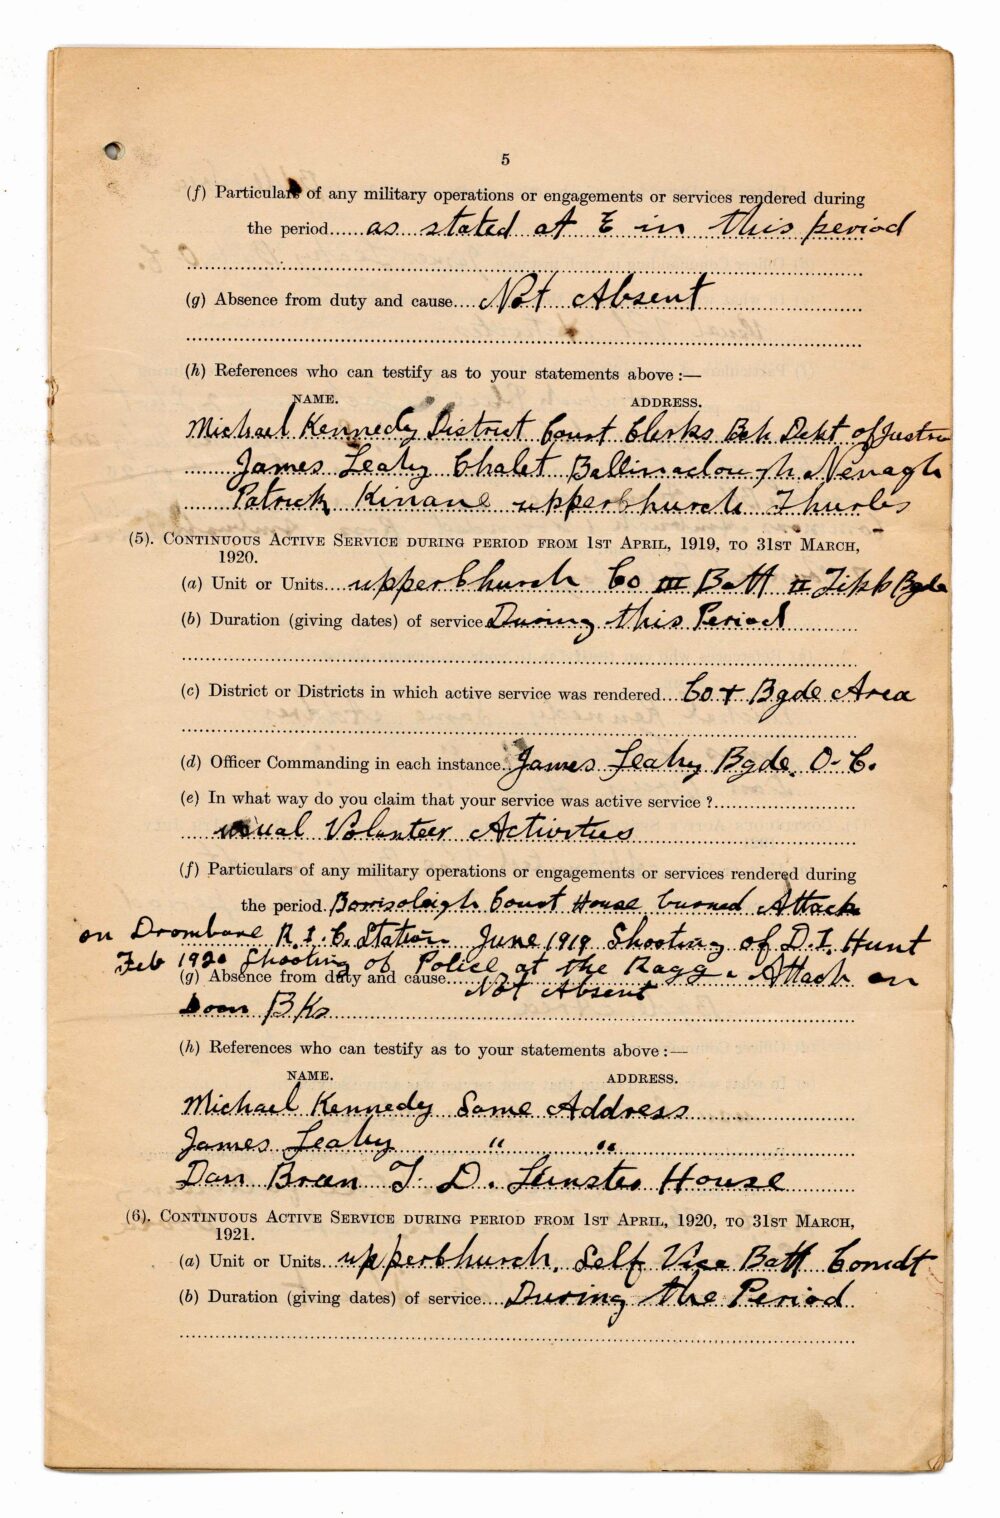 5
(f) Particulars of any military operations or engagements or services rendered during
the period as stated at E in this period
(g) Absence from duty and cause Not Absent
(h) References who can testify as to your statements above :—
NAME. ADDRESS.
Michael Kennedy District Court Clerks Bch Dept of Justice
James Leahy Chalet Ballinaclough Nenagh
Patrick Kinane upperChurch Thurles
(5). CONTINUOUS ACTIVE SERVICE DURING PERIOD FROM 1ST APRIL, 1919, TO 31ST MARCH,
1920.
(a) Unit or Units upperChurch Co III Batt II Tipp Bgde
(b) Duration (giving dates) of service During this Period
(c) District or Districts in which active service was rendered Co + Bgde Area
(d) Officer Commanding in each instance James Leahy Bgde. O-C.
(e) In what way do you claim that your service was active service ?
usual Volunteer Activities
(f) Particulars of any military operations or engagements or services rendered during
the period Borrisoleigh Court House burned Attack
on Drombane R.I.C. Station June 1919 Shooting of D.I. Hunt
Feb 1920 Shooting of Police at the Ragg - Attack on
(g) Absence from duty and cause Not Absent
Doon BKs
(h) References who can testify as to your statements above :—
NAME. ADDRESS.
Michael Kennedy Same Address
James Leahy " "
Dan Breen T. D. Leinster House
(6). CONTINUOUS ACTIVE SERVICE DURING PERIOD FROM 1ST APRIL, 1920, TO 31ST MARCH,
1921.
(a) Unit or Units upperChurch. Self Vice Batt Comdt
(b) Duration (giving dates) of service During the Period